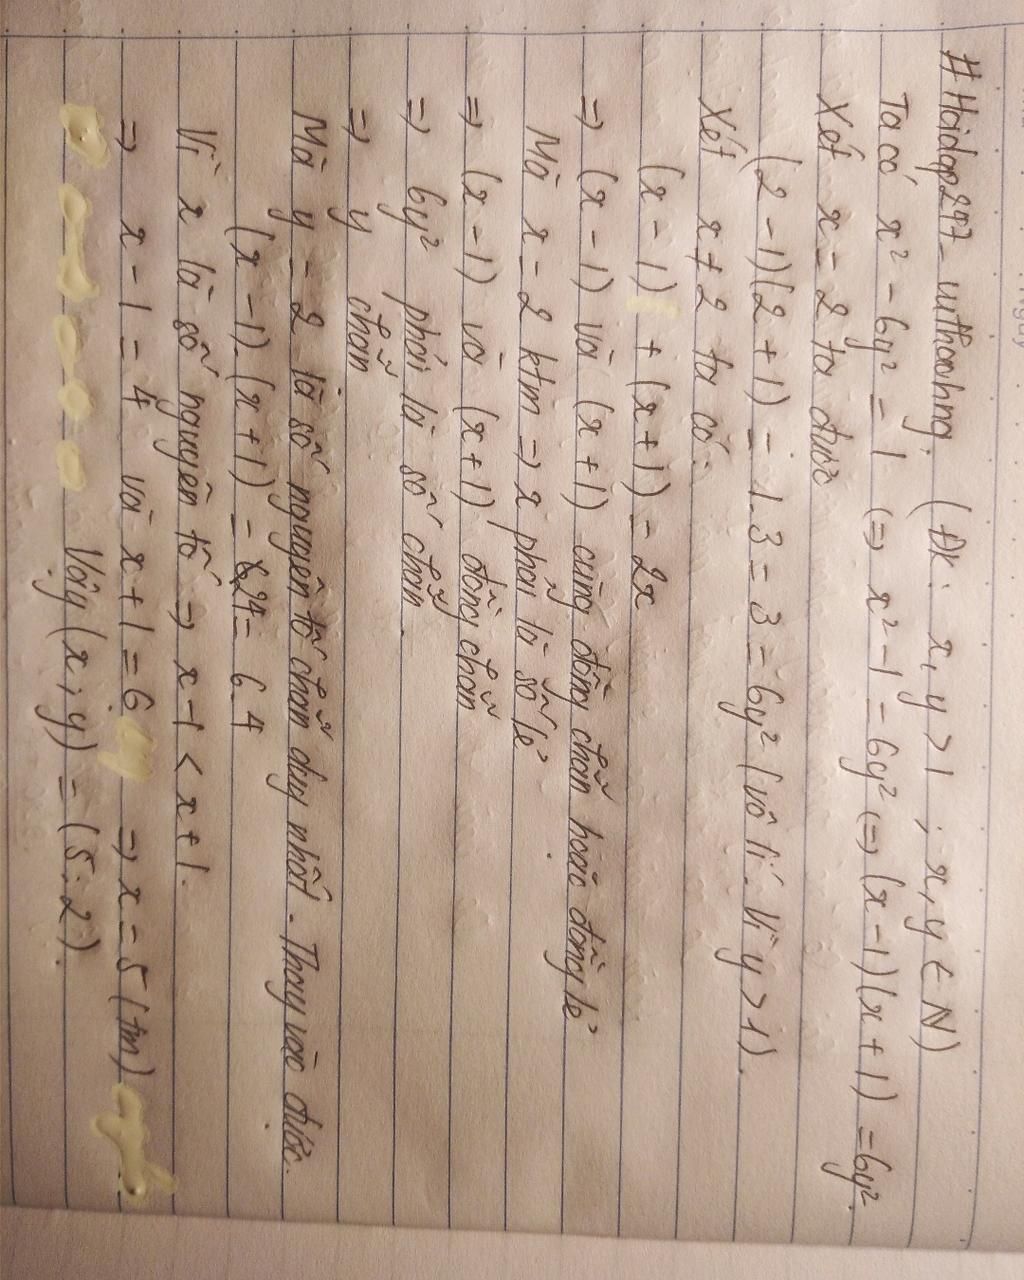 #Hoidap247-uthaohng. (Đk: x, y > 1 ; x, y ∈ N)
Ta có x² - 6y² = 1 (=) x² - 1 = 6y² (=) (x - 1)(x + 1) = 6y²
Xét x = 2 ta được
(2 - 1)(2 + 1) = 1.3 = 3 = 6y² (vô lí. Vì y > 1).
Xét x ≠ 2 ta có:
(x - 1) + (x + 1) = 2x
=) (x - 1) và (x + 1) cùng đồng chẵn hoặc đồng lẻ
Mà x = 2 ktm =) x phải là số lẻ
=) (x - 1) và (x + 1) đồng chẵn
=) 6y² phải là số chẵn.
=) y chẵn
Mà y = 2 là số nguyên tố chẵn duy nhất. Thay vào được.
(x - 1).(x + 1) = 24 = 6.4
Vì x là số nguyên tố =) x - 1 < x + 1.
=) x - 1 = 4 và x + 1 = 6 =) x = 5 (tm)
Vậy (x ; y) = (5; 2).